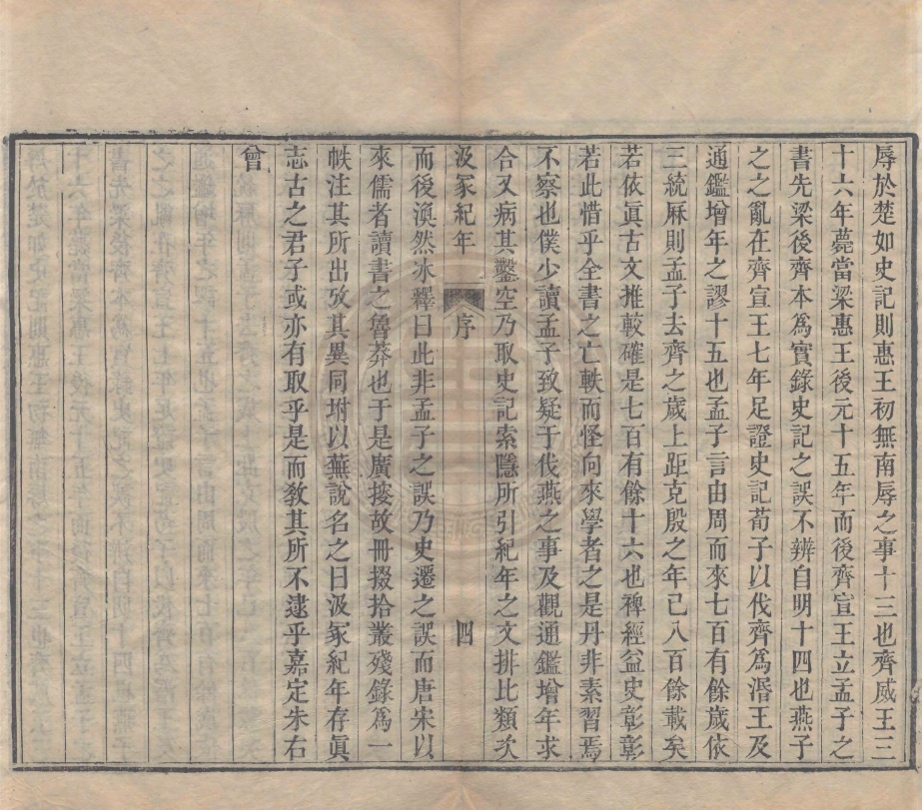 辱於楚如史記則惠王初無南辱之事十三也齊威王三
十六年薨當梁惠王後元十五年而後齊宣王立孟子之
書先梁後齊本爲實錄史記之誤不辨自明十四也燕子
之之亂在齊宣王七年足證史記荀子以伐齊爲湣王及
通鑑增年之謬十五也孟子言由周而來七百有餘歲依
三統厤則孟子去齊之歲上距克殷之年已八百餘載矣
若依眞古文推較確是七百有餘十六也裨經益史彰彰
若此惜乎全書之亡軼而怪向來學者之是丹非素習焉
不察也僕少讀孟子致疑于伐燕之事及觀通鑑增年求
合又病其鑿空乃取史記索隱所引紀年之文排比類次
汲冢紀年 序 四
而後渙然冰釋曰此非孟子之誤乃史遷之誤而唐宋以
來儒者讀書之魯莽也于是廣搜故冊掇拾叢殘錄爲一
帙注其所出攷其異同坿以蕪說名之曰汲冢紀年存眞
志古之君子或亦有取乎是而敎其所不逮乎嘉定朱右
曾